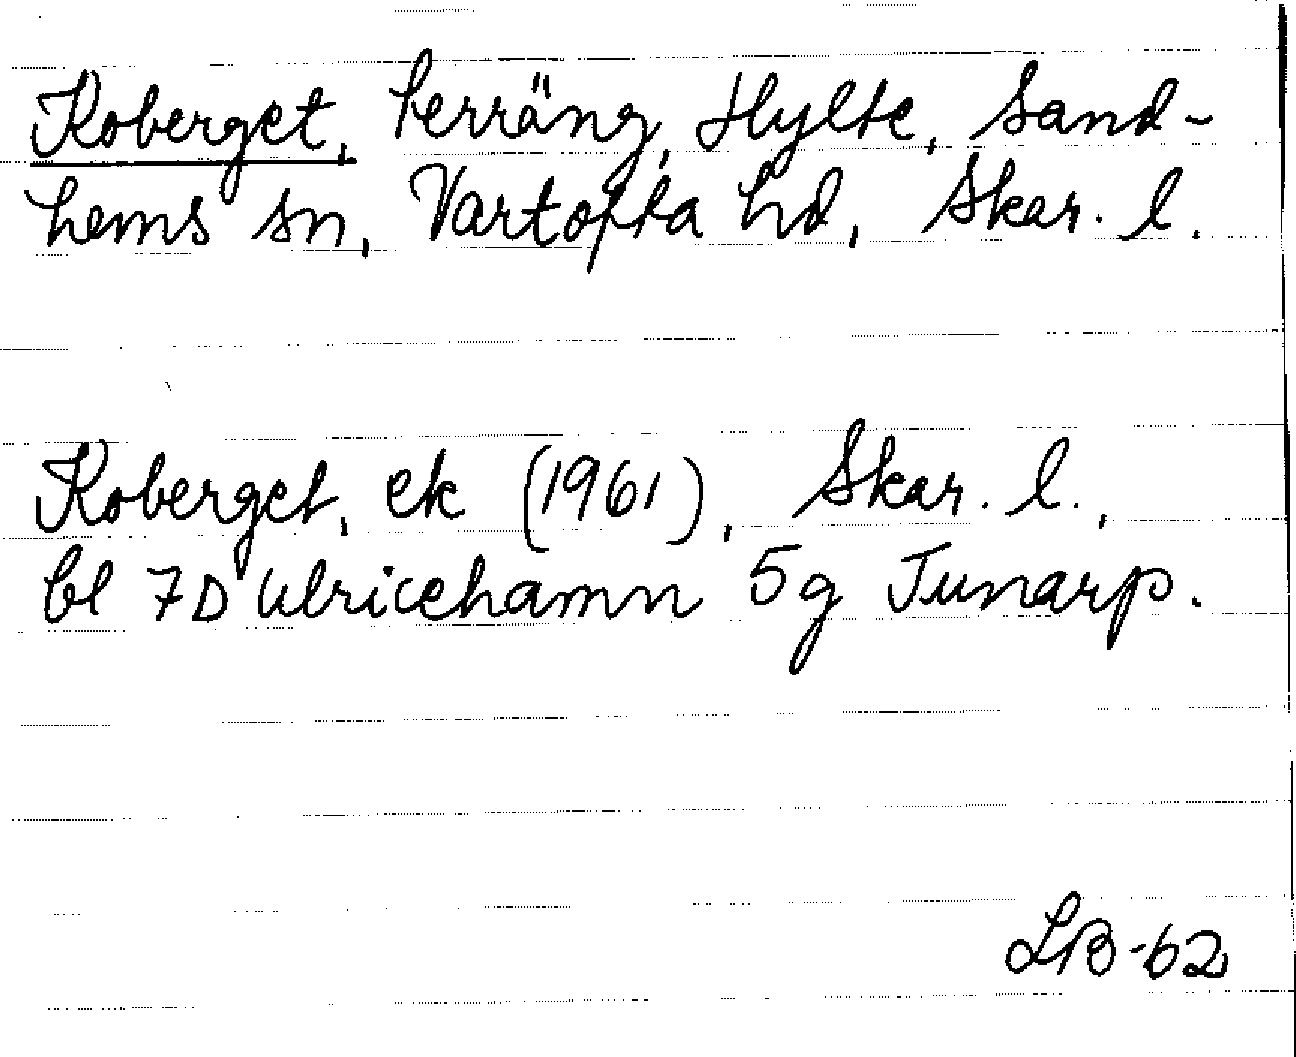 Koberget, terräng, Hylte, Sand-
hems sn, Vartofta hd, Skar. l.
Koberget, ek (1961), Skar. l.,
bl 7D Ulricehamn 5g Tunarp.
LB-62